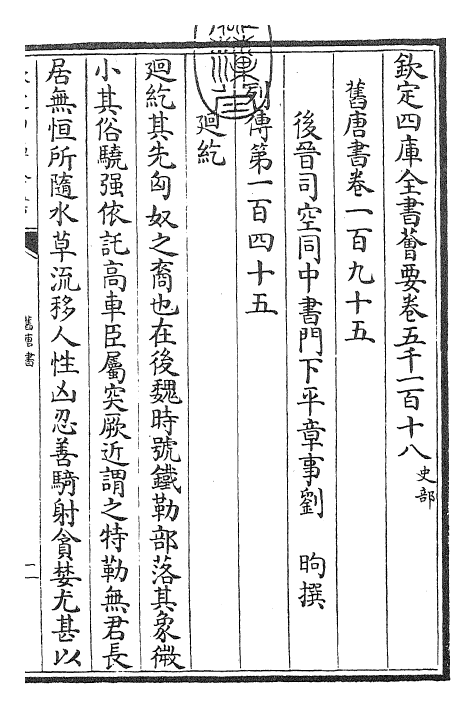 欽定四庫全書薈要卷五千一百十八 史部
舊唐書卷一百九十五
後晉司空同中書門下平章事劉 昫撰
列傳第一百四十五
廻紇
廻紇其先匈奴之裔也在後魏時號鐵勒部落其象微
小其俗驍强依託高車臣屬突厥近謂之特勒無君長
居無恒所隨水草流移人性凶忍善騎射貪婪尤甚以
舊唐書
一